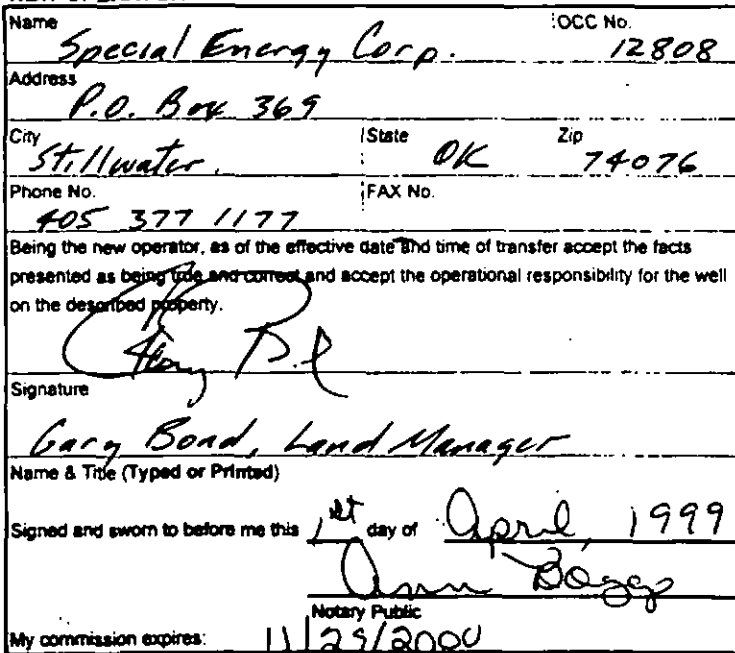 Name OCC No.
Special Energy Corp. 12808
Address
P.O. Box 369
City State Zip
Stillwater, OK 74076
Phone No. FAX No.
405 377 1177
Being the new operator, as of the effective date and time of transfer accept the facts
presented as being true and correct and accept the operational responsibility for the well
on the described property.
Signature
Gary Bond, Land Manager
Name & Title (Typed or Printed)
Signed and sworn to before me this 1st day of April, 1999
Ann Boggs
Notary Public
My commission expires: 11/29/2000